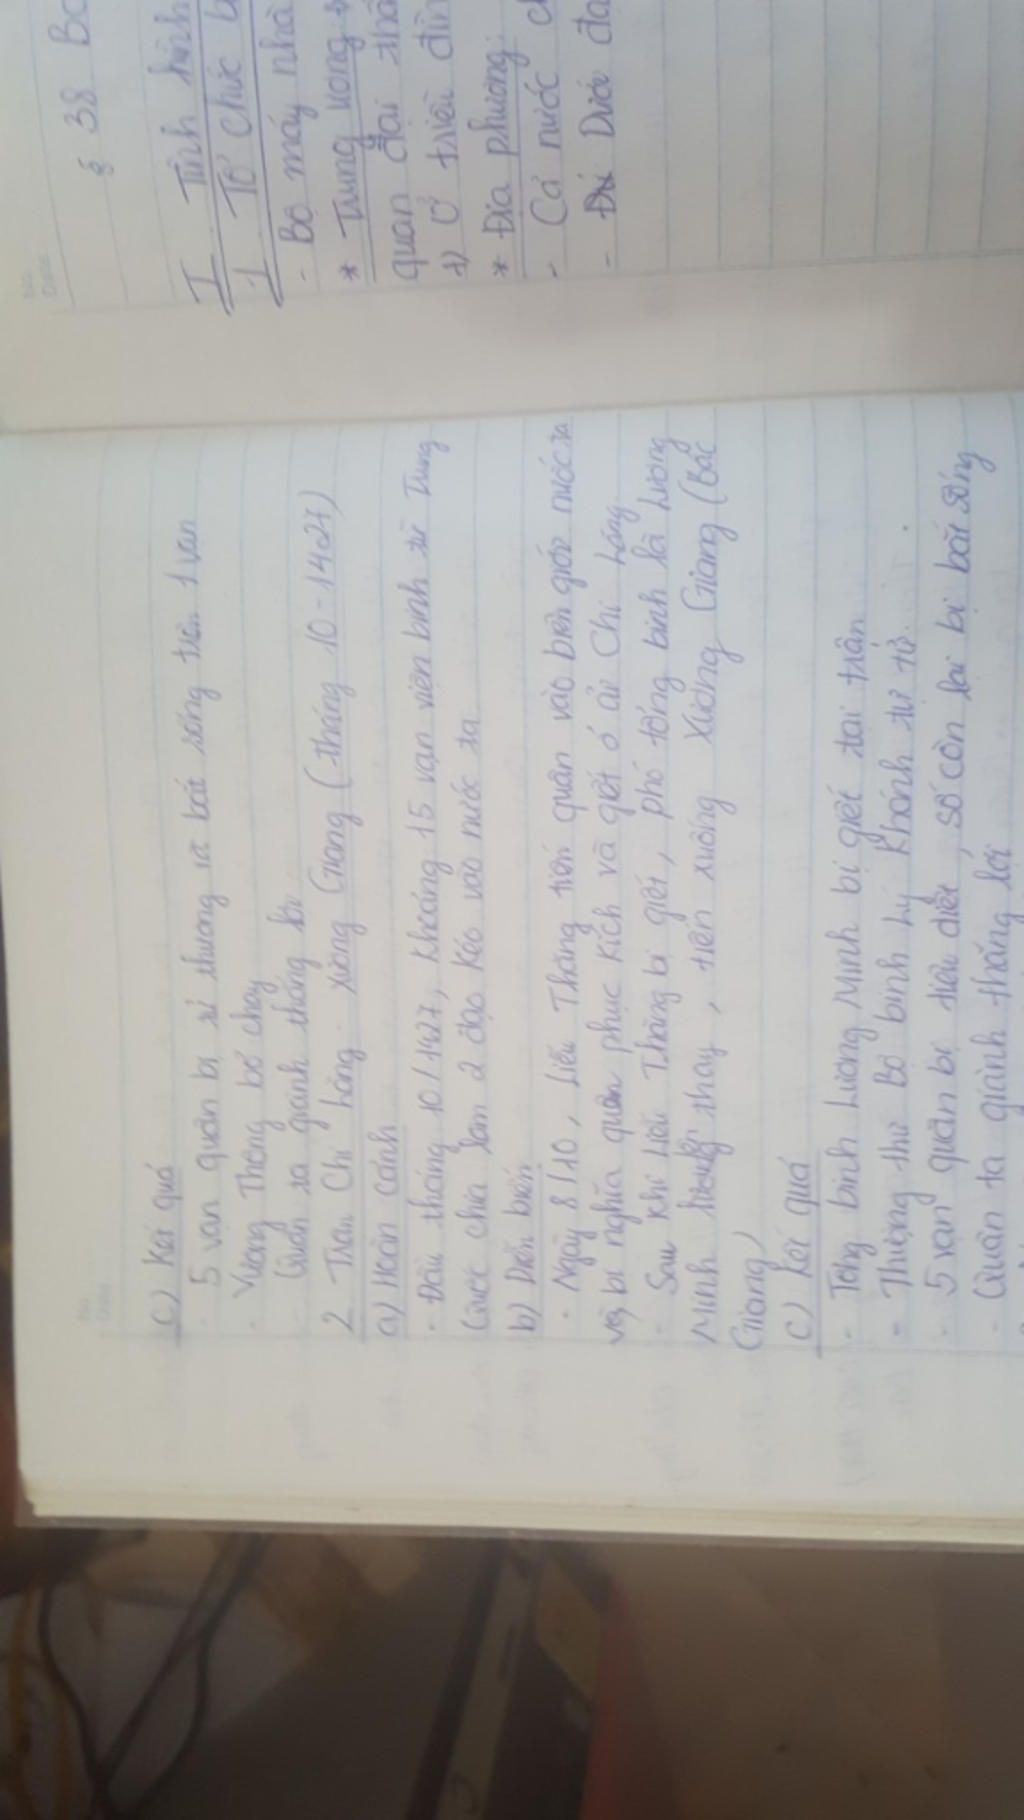 c) Kết quả
- 5 vạn quân bị tử thương và bắt sống trên 1 vạn
- Vương Thông bỏ chạy
- Quân ta giành thắng lợi
2 Trận Chi Lăng - Xương Giang (tháng 10 - 1427)
a) Hoàn cảnh
- Đầu tháng 10/1427, khoảng 15 vạn viện binh từ Trung
Quốc chia làm 2 đạo kéo vào nước ta
b) Diễn biến
- Ngày 8/10, Liễu Thăng tiến quân vào biên giới nước ta
và bị nghĩa quân phục kích và giết ở ải Chi Lăng
- Sau khi Liễu Thăng bị giết, phó tổng binh là Lương
Minh thay, tiến xuống Xương Giang (Bắc
Giang)
c) Kết quả
- Tổng binh Lương Minh bị giết tại trận
- Thượng thư Bộ binh Lý Khánh tự tử.
- 5 vạn quân bị tiêu diệt, số còn lại bị bắt sống
- Quân ta giành thắng lợi
§ 38 Bo
I Tình hình
1 Tổ chức b
- Bộ máy nhà
* Trung ương
quan đại thầ
+) Ở triều đìn
* Địa phương:
- Cả nước c
- Dưới đạ